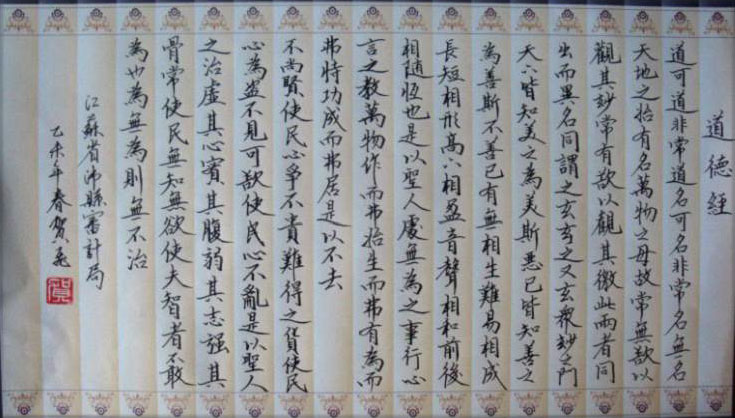 道德經
道可道非常道名可名非常名無名
天地之始有名萬物之母故常無欲以
觀其妙常有欲以觀其徼此兩者同
出而異名同謂之玄玄之又玄衆妙之門
天下皆知美之為美斯惡已皆知善之
為善斯不善已有無相生難易相成
長短相形高下相盈音聲相和前後
相隨恆也是以聖人處無為之事行不
言之教萬物作而弗始生而弗有為而
弗恃功成而弗居是以不去
不尚賢使民不爭不貴難得之貨使民
不為盜不見可欲使民心不亂是以聖人
之治虛其心實其腹弱其志強其
骨常使民無知無欲使夫智者不敢
為也為無為則無不治
江蘇省沛縣審計局
乙未年春賀
賀